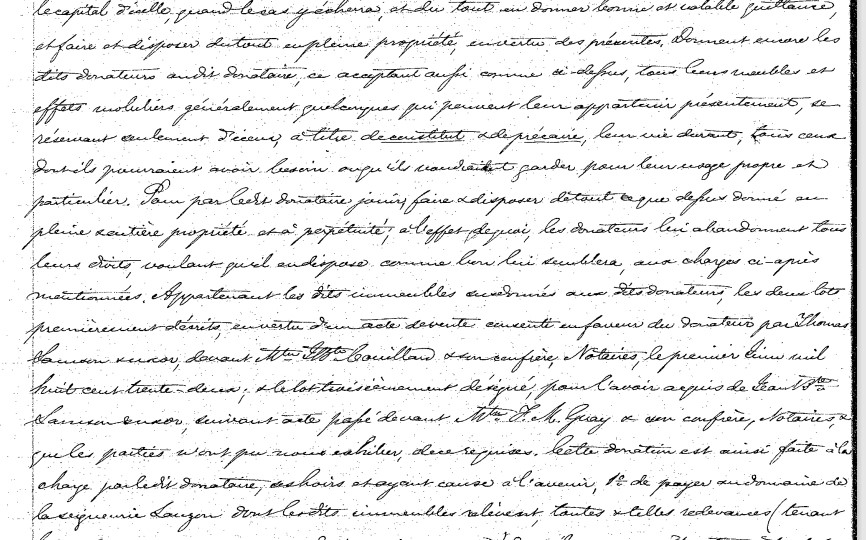 le capital d'icelle quand le cas y écherra, et du tout en donner bonne et valable quittance,
et faire et disposer du tout en pleine propriété, en vertu des présentes. Donnent encore les
dits donateurs audit donataire, ce acceptant aussi comme ci-dessus, tous leurs meubles et
effets mobiliers généralement quelconques qui peuvent leur appartenir présentement, se
réservant seulement d'iceux, à titre de constitut & de précaire, leur vie durant, tous ceux
dont ils pourraient avoir besoin ou qu'ils voudraient garder pour leur usage propre et
particulier. Pour par ledit donataire jouir, faire & disposer de tout ce que dessus donné en
pleine & entière propriété et à perpétuité; à l'effet de quoi, les donateurs lui abandonnent tous
leurs droits, voulant qu'il en dispose comme bon lui semblera, aux charges ci-après
mentionnées. Appartenant les dits immeubles susdonnés aux dits donateurs, les deux lots
premièrement décrits, en vertu d'un acte de vente consenti en faveur du donateur par Thomas
Samson & uxor, devant Mtre J. Bte Couillard & son confrère, Notaires, le premier Juin mil
huit cent trente-deux; & le lot troisièmement désigné, pour l'avoir acquis de Jean Bte
Samson & uxor, suivant acte passé devant Mtre F. M. Guay & son confrère, Notaires, &
que les parties n'ont pu nous exhiber, de ce requises. Cette donation est ainsi faite à la
charge par ledit donataire, ses hoirs et ayant cause à l'avenir, 1º de payer au domaine de
la seigneurie Lauzon dont les dits immeubles relèvent, toutes & telles redevances (tenant